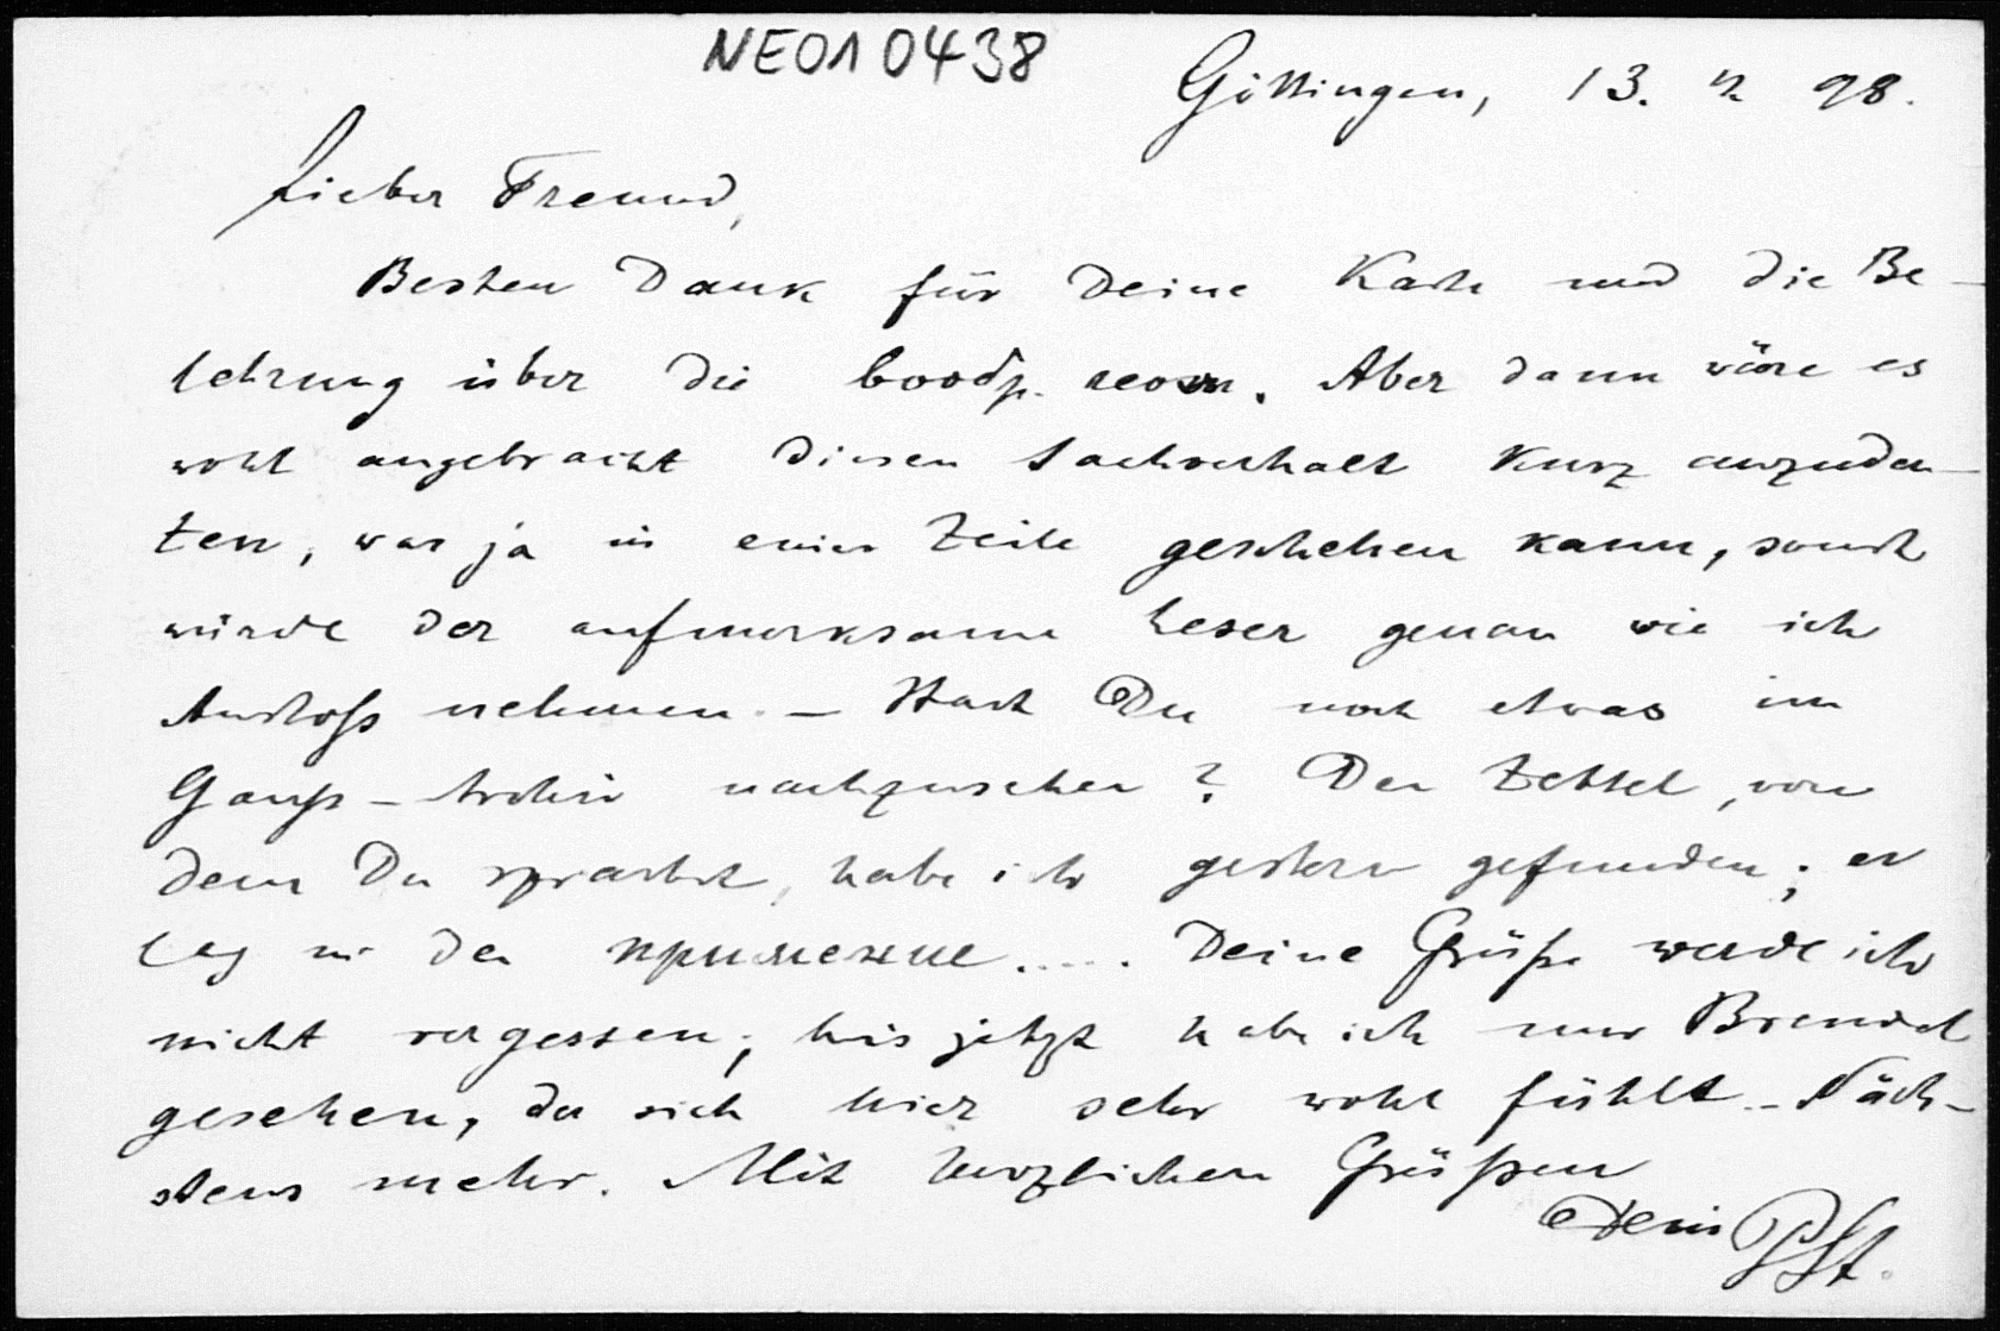 NE010438
Göttingen, 13. 98.
Lieber Freund,
Besten Dank für Deine Karte und die Be-
lehrung über die Aber dann wäre es
wohl angebracht diesen Sachverhalt kurz anzudeu-
ten, was ja in einer Zeile geschehen kann, sonst
würde der aufmerksame Leser genau wie ich
Anstoß nehmen. – Hast Du noch etwas im
Gauß-Archiv nachzusehen? Der Zettel, von
dem Du sprachst, habe ich gestern gefunden; er
lag in der Deine Grüße werde ich
nicht vergessen; bis jetzt habe ich nur Brendel
gesehen, der sich hier sehr wohl fühlt. – Näch-
stens mehr. Mit herzlichen Grüßen
Dein PSt.